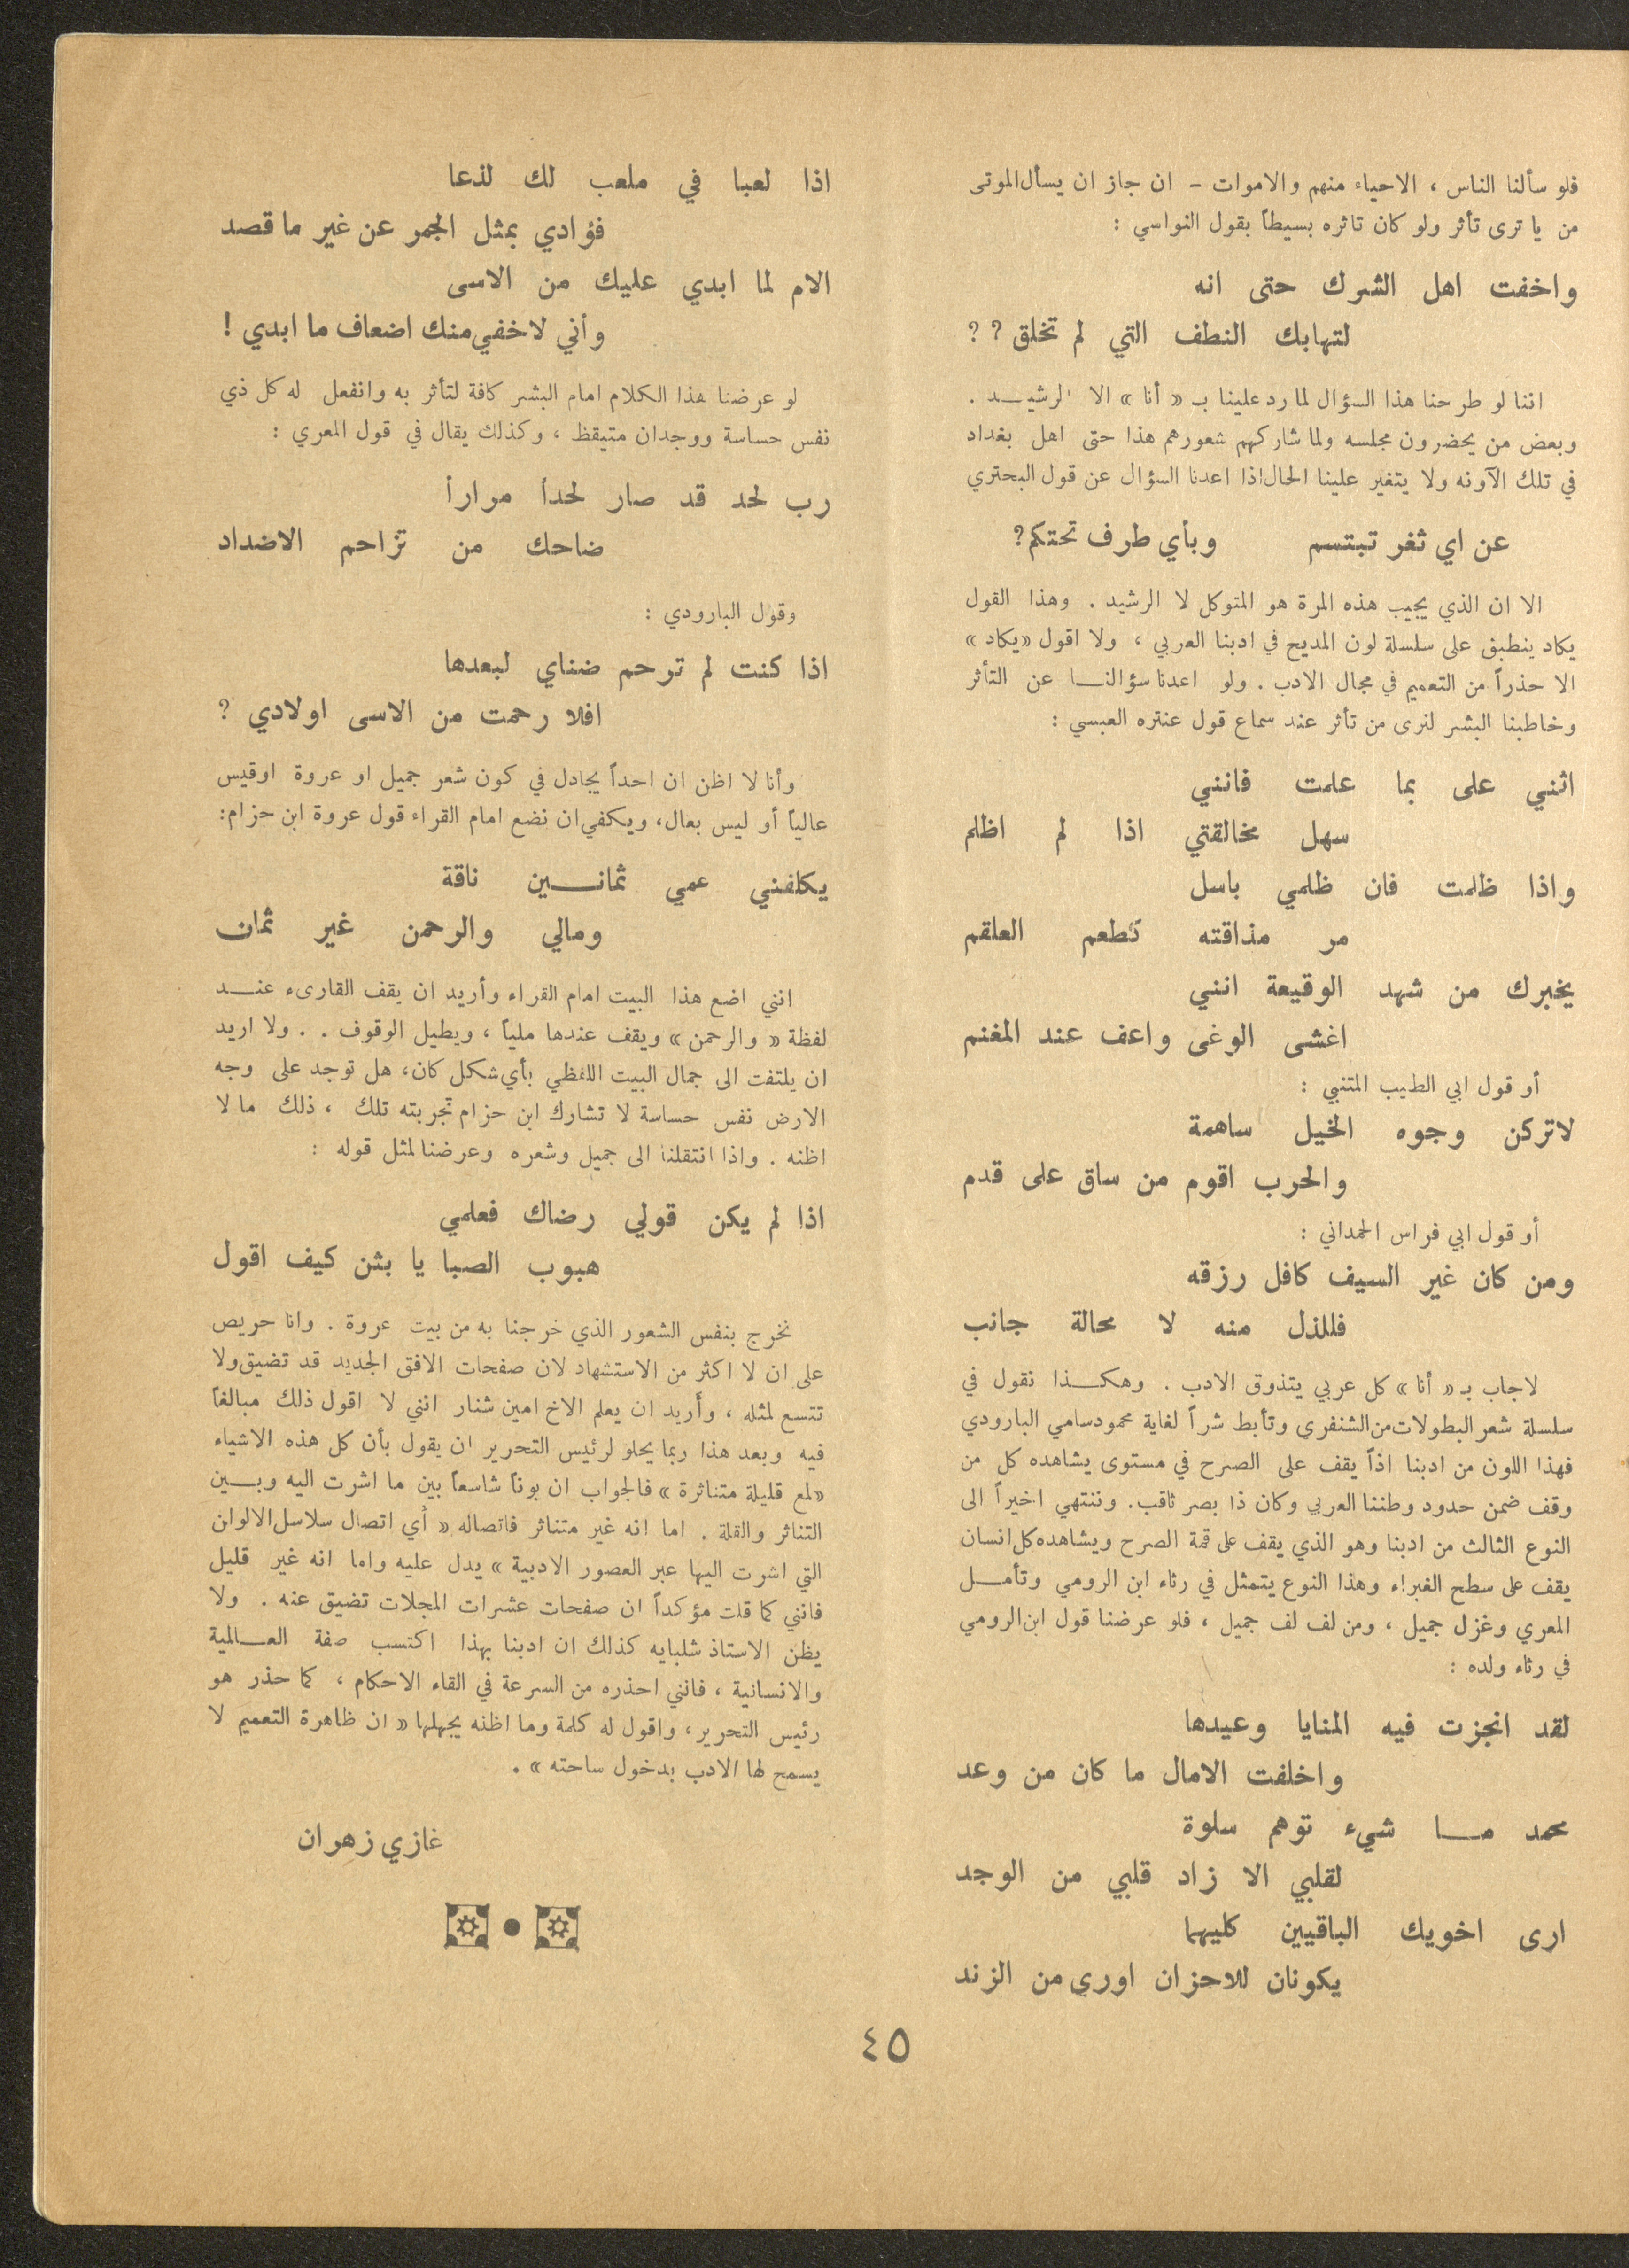 فلو سألنا الناس ، الاحياء منهم والاموات – ان جاز ان يسأل الموتى
من يا ترى تأثر ولو كان تاثره بسيطاً بقول النواسي :
واخفت اهل الشرك حتى انه
لتهابك النطف التي لم تخلق ? ?
اننا لو طرحنا هذا السؤال لما رد علينا بـ « أنا » الا الرشيـــد .
وبعض من يحضرون مجلسه ولما شاركهم شعورهم هذا حتى اهل بغداد
في تلك الآونه ولا يتغير علينا الحال اذا اعدنا السؤال عن قول البحتري
عن اي ثغر تبتسم وبأي طرف تحتكم?
الا ان الذي يجيب هذه المرة هو المتوكل لا الرشيد . وهذا القول
يكاد ينطبق على سلسلة لون المديح في ادبنا العربي ، ولا اقول «يكاد »
الا حذراً من التعميم في مجال الادب . ولو اعدنا سؤالنـــا عن التأثر
وخاطبنا البشر لنرى من تأثر عند سماع قول عنتره العبسي :
اثني على بما علمت فانني
سهل مخالقتي اذا لم اظلم
واذا ظلمت فان ظلمي باسل
مر مذاقته كطعم العلقم
يخبرك من شهد الوقيعة انني
اغشى الوغى واعف عند المغنم
أو قول ابي الطيب المتنبي :
لاتركن وجوه الخيل ساهمة
والحرب اقوم من ساق على قدم
أو قول ابي فراس الحمداني :
ومن كان غير السيف كافل رزقه
فللذل منه لا محالة جانب
لاجاب بـ « أنا » كل عربي يتذوق الادب . وهكــذا نقول في
سلسلة شعر البطولات من الشنفرى وتأبط شراً لغاية محمود سامي البارودي
فهذا اللون من ادبنا اذاً يقف على الصرح في مستوى يشاهده كل من
وقف ضمن حدود وطننا العربي وكان ذا بصر ثاقب. وننتهي اخيراً الى
النوع الثالث من ادبنا وهو الذي يقف على قمة الصرح ويشاهده كل انسان
يقف على سطح الغبراء وهذا النوع يتمثل في رثاء ابن الرومي وتأمــل
المعري وغزل جميل ، ومن لف لف جميل ، فلو عرضنا قول ابن الرومي
في رثاء ولده :
لقد انجزت فيه المنايا وعيدها
واخلفت الامال ما كان من وعد
محمد مـــا شيء توهم سلوة
لقلبي الا زاد قلبي من الوجد
ارى اخويك الباقيين كليهما
يكونان للاحزان اورى من الزند
اذا لعبا في ملعب لك لذعا
فؤادي بمثل الجمر عن غير ما قصد
الام لما ابدي عليك من الاسى
وأني لاخفي منك اضعاف ما ابدي !
لو عرضنا هذا الكلام امام البشر كافة لتأثر به وانفعل له كل ذي
نفس حساسة ووجدان متيقظ ، وكذلك يقال في قول المعري :
رب لحد قد صار لحداً مراراً
ضاحك من تزاحم الاضداد
وقول البارودي :
اذا كنت لم ترحم ضناي لبعدها
افلا رحمت من الاسى اولادي ?
وأنا لا اظن ان احداً يجادل في كون شعر جميل او عروة اوقيس
عالياً أو ليس بعال، ويكفي ان نضع امام القراء قول عروة ابن حزام:
يكلفني عمي ثمانـــين ناقة
ومالي والرحمن غير ثمان
انني اضع هذا البيت امام القراء وأريد ان يقف القارىء عنــد
لفظة « والرحمن » ويقف عندها ملياً ، ويطيل الوقوف . . ولا اريد
ان يلتفت الى جمال البيت اللفظي بأي شكل كان، هل توجد على وجه
الارض نفس حساسة لا تشارك ابن حزام تجربته تلك ، ذلك ما لا
اظنه . واذا انتقلنا الى جميل وشعره وعرضنا لمثل قوله :
اذا لم يكن قولي رضاك فعلمي
هبوب الصبا يا بثن كيف اقول
نخرج بنفس الشعور الذي خرجنا به من بيت عروة . وانا حريص
على ان لا اكثر من الاستشهاد لان صفحات الافق الجديد قد تضيق ولا
تتسع لمثله ، وأريد ان يعلم الاخ امين شنار انني لا اقول ذلك مبالغاً
فيه وبعد هذا ربما يحلو لرئيس التحرير ان يقول بأن كل هذه الاشياء
«لمع قليلة متناثرة » فالجواب ان بوناً شاسعاً بين ما اشرت اليه وبــين
التناثر والقلة . اما انه غير متناثر فاتصاله « أي اتصال سلاسل الالوان
التي اشرت اليها عبر العصور الادبية » يدل عليه واما انه غير قليل
فانني كما قلت مؤكداً ان صفحات عشرات المجلات تضيق عنه . ولا
يظن الاستاذ شلبايه كذلك ان ادبنا بهذا اكتسب صفة العــالمية
والانسانية ، فانني احذره من السرعة في القاء الاحكام ، كما حذر هو
رئيس التحرير، واقول له كلمة وما اظنه يجهلها « ان ظاهرة التعميم لا
يسمح لها الادب بدخول ساحته » .
غازي زهران
٤٥